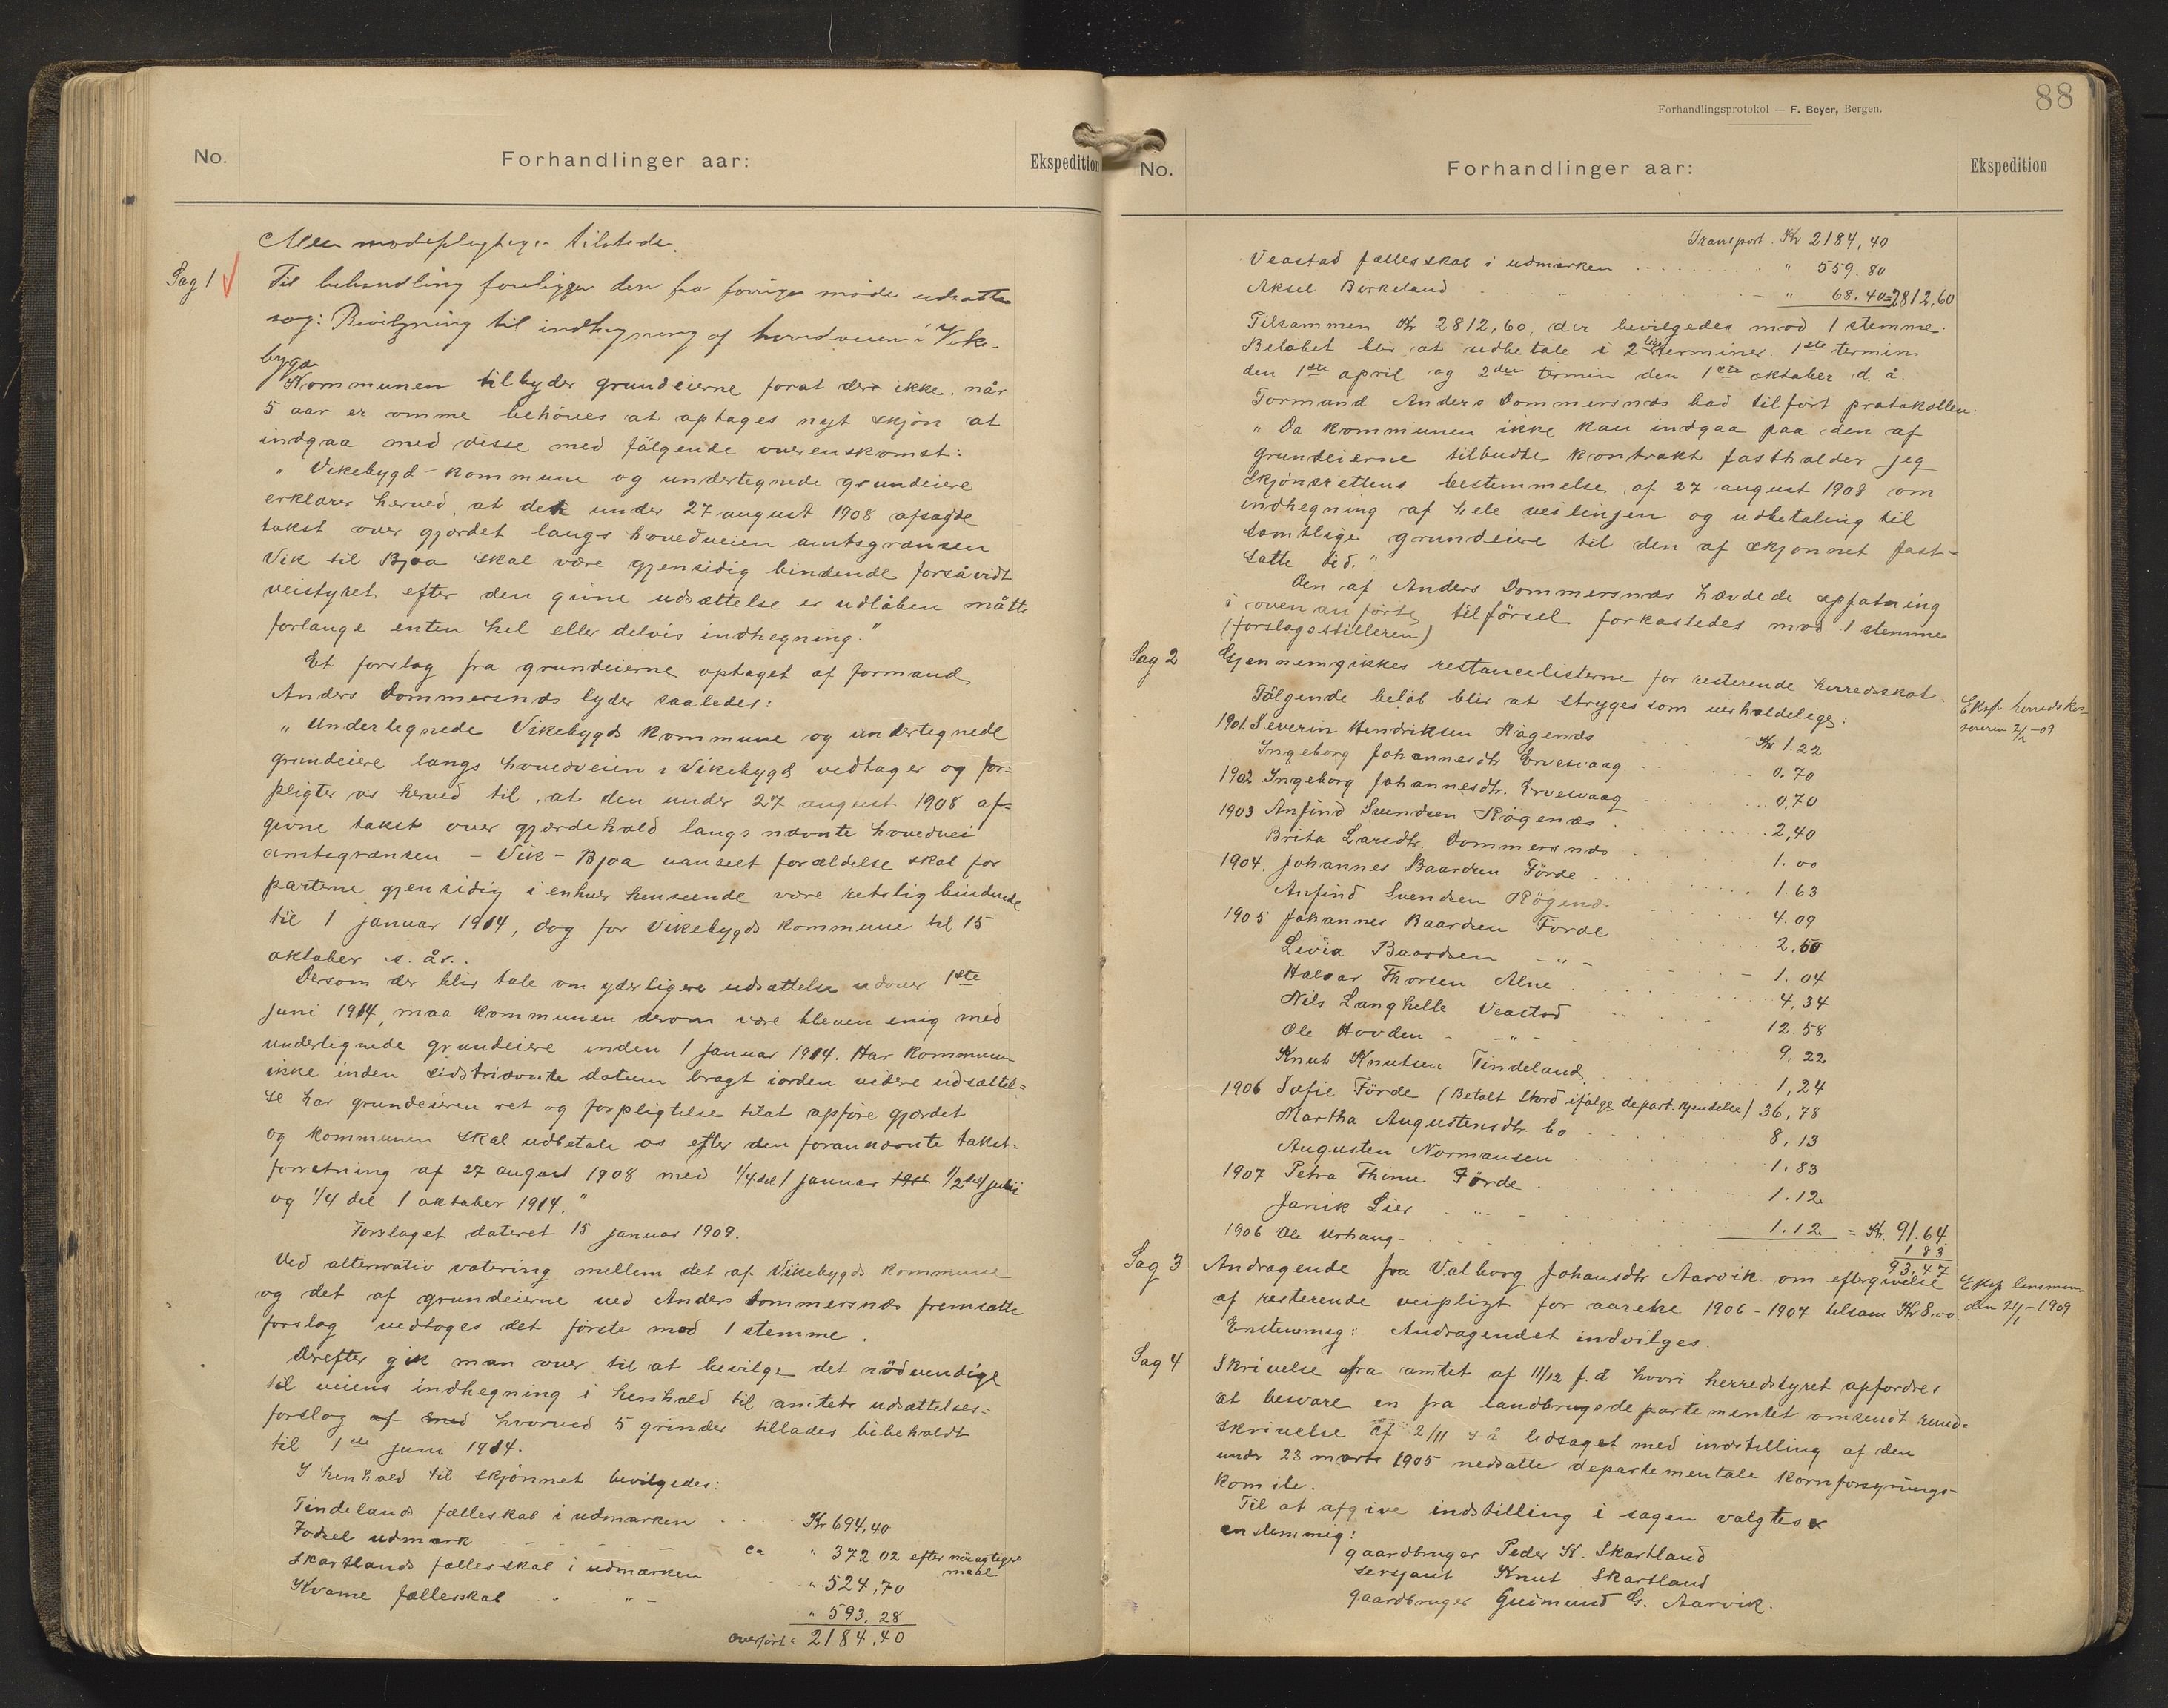 No.
Forhandlinger aar:
Ekspedition
Alle mødepligtige tilstede.
Sag 1
Til behandling foreligger den fra forrige møde udsatte
sag: Bevilgning til indhegning af hovedveien i Vike-
bygd
Kommunen tilbyder grundeierne forat der ikke, når
5 aar er omme behöves at optages nyt skjön at
indgaa med disse med fölgende overenskomst:
„ Vikebygd - kommune og undertegnede grundeiere
erklærer herved, at den under 27 august 1908 afsagde
takst over gjerdet langs hovedveien amtsgrænsen
Vik til Bjoa skal være gjensidig bindende forsåvidt
veistyret efter den givne udsættelse er udlöben måtte
forlange enten hel eller delvis indhegning."
Et forslag fra grundeierne optaget af formand
Anders Dommersnæs lyder saaledes:
„ Undertegnede Vikebygds kommune og undertegnede
grundeiere langs hovedveien i Vikebygd vedtager og for=
pligter os herved til, at den under 27 august 1908 af=
givne takst over gjærdehold langs nævnte hovedvei
amtsgrænsen - Vik - Bjoa uanseet forældelse skal for
parterne gjensidig i enhver henseende være retslig bindende
til 1 januar 1914, dog for Vikebygds kommune til 15
oktober s. år..
Dersom der blir tale om yderligere udsættelse udover 1ste
juni 1914, maa kommunen derom være bleven enig med
undertegnede grundeiere inden 1 januar 1914. Har kommunen
ikke inden sidstnævnte datum bragt iorden videre udsættel=
se har grundeieren ret og forpligtelse tilat opföre gjærdet
og kommunen skal udbetale os efter den forannævnte takst-
forretning af 27 august 1908 med 1/4 del 1 januar 1/2 del 1 juli
og 1/4 del 1 oktober 1914."
Forslaget dateret 15 januar 1909.
Ved alternativ votering mellem det af Vikebygds kommune
og det af grundeierne ved Anders Dommersnæs fremsatte
forslag vedtoges det förste mod 1 stemme.
Derefter gik man over til at bevilge det nödvendige
til veiens indhegning i henhold til amtets udsættelses=
forslag af hvorved 5 grinder tillades bibeholdt
til 1ste juni 1914.
I henhold til skjönnet bevilgedes:
Tindelands fælleskab i udmarken . . . Kr 694,40
Fodsel udmark ca „ 372.02 efter nöiagtigere
maal
Skartlands fælleskab i udmarken „ 524,70
Kvame fælleskab . . „ - „ 593,28
overfört „ 2184,40
88
Forhandlingsprotokol — F. Beyer, Bergen.
No.
Forhandlinger aar:
Ekspedition
Transport. Kr 2184,40
Veastad fælleskab i udmarken . . . „ 559.80
Aksel Birkeland . . . „ 68.40=2812,60
Tilsammen Kr 2812,60, der bevilgedes mod 1 stemme.
Belöbet blir at udbetale i 2 lige terminer. 1ste termin
den 1ste april og 2den termin den 1ste oktober d. å.
Formand Anders Dommersnæs bad tilfört protokollen:
„ Da kommunen ikke kan indgaa paa den af
grundeierne tilbudte kontrakt fastholder jeg
skjönsrettens bestemmelse af 27 august 1908 om
indhegning af hele veilinjen og udbetaling til
samtlige grundeiere til den af skjönnet fast-
satte tid."
Den af Anders Dommersnæs hævdede opfatning
i ovenanförte tilförsel forkastedes mod 1 stemme
(forslagsstilleren)
Sag 2
Gjennemgikkes restancelisterne for resterende herredsskat.
Fölgende belöb blir at stryges som uerholdelige:
Eksp herredskas-
sereren 2/2-09
1901. Severin Hendriksen Rögenæs . . . Kr 1.22
Ingeborg Johannesdtr Ervesvaag . . . 0.70
1902 Ingeborg Johannesdtr. Ervesvaag . . . 0,70
1903 Anfind Svendsen Rögenæs . . . 2,40
Brita Larsdtr. Dommersnæs . . . 1.00
1904. Johannes Baardsen Förde . . . 1.63
Anfind Svendsen Rögenæs . . . 4.09
1905 Johannes Baardsen Förde . . . 2.50
Livia Baardsen - „ - . . . 1.04
Halvar Thorsen Alne . . . 4,34
Nils Langhelle Veastad . . . 12.58
Ole Hovden - - „ - . . . 9,22
Knut Knutsen Tindeland . . . 1,24
1906 Sofie Förde (Betalt Stord ifölge depart. kjendelse) 36,78
Martha Augustensdtr. bo . . . 8,13
Augusten Normansen . . . 1.83
1907 Petra Thime Förde . . . 1.12
Janik Lier - „ - . . . 1.12 = Kr. 91.64
1906 Ole Urhaug - . . . 1 83
93,47
Sag 3
Andragende fra Valborg Johansdtr Aarvik om eftergivelse
af resterende veipligt for aarene 1906 - 1907 tilsam Kr 8.00.
Enstemmig: Andragendet indvilges.
Eksp lensman-
den 21/1-1909
Sag 4
Skrivelse fra amtet af 11/12 f. å hvori herredstyret opfordres
at besvare en fra landbrugsdepartementet omsendt rund-
skrivelse af 2/11 s å ledsaget med indstilling af den
under 23 marts 1905 nedsatte departementale kornforsynings-
komite.
Til at afgive indstilling i sagen valgtes
enstemmig:
gaardbruger Peder K. Skartland
sersjant Knut Skartland
gaardbruger Gudmund G. Aarvik.